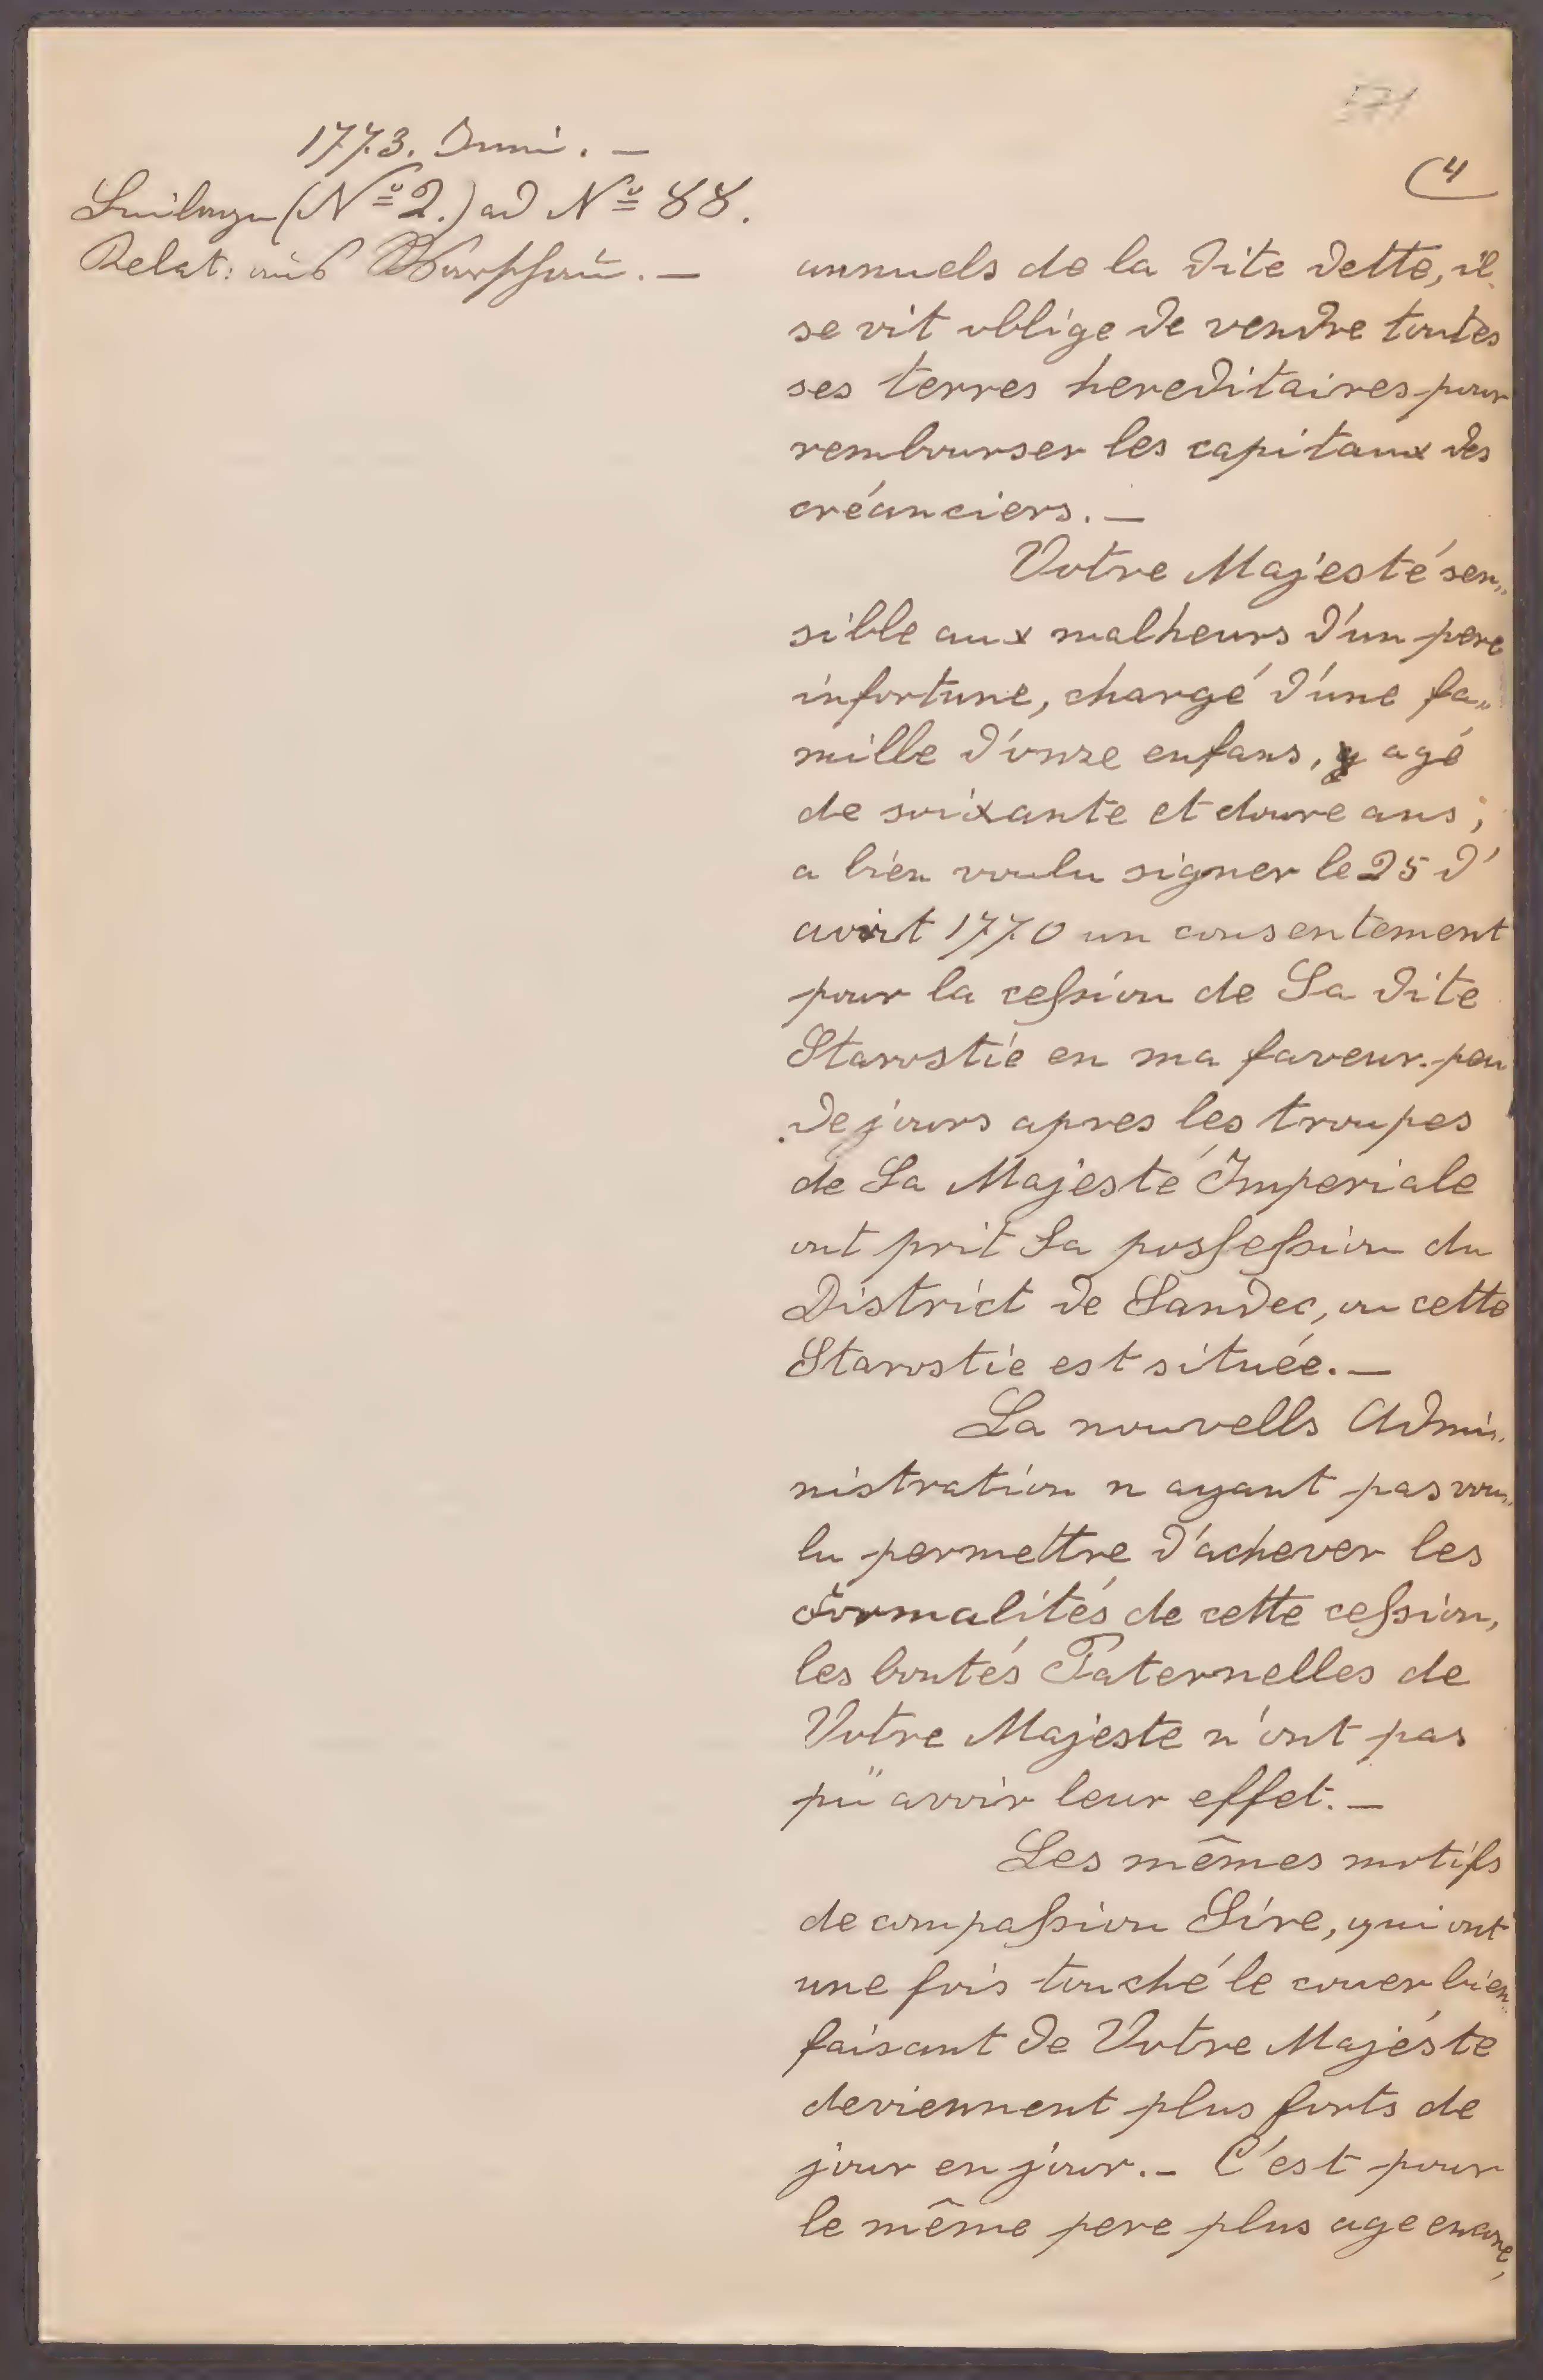 571
4
1773. Juni. —
Beilage (Nº 2.) ad Nº 88.
Relat: aus Warschau. —
annuels de la dite dette, il
se vit oblige de vendre toutes
ses terres hereditaires pour
rembourser les capitaux des
créanciers. —
Votre Majesté sen„
sible aux malheurs d'un pere
infortune, chargé d'une fa„
mille d'onze enfans, agé
de soixante et douze ans;
a bien voulu signer le 25 d'
avirt 1770 un consentement
pour la ceſsion de Sa dite
Starostie en ma faveur. peu
de jours apres les troupes
de Sa Majesté Imperiale
ont prit la posſeſsion du
District de Sandec, ou cette
Starostie est située. —
La nouvells Admi„
nistration n ayant pas vou„
lu permettre d'achever les
formalités de cette ceſsion,
les bontés Paternelles de
Votre Majeste n'ont pas
pü avoir leur effet. —
Les mêmes motifs
de compaſsion Sire, qui ont
une fois touché le couer bien„
faisant de Votre Majéste
deviennent plus forts de
jour en jour. – C'est pour
le même pere plus age encore,